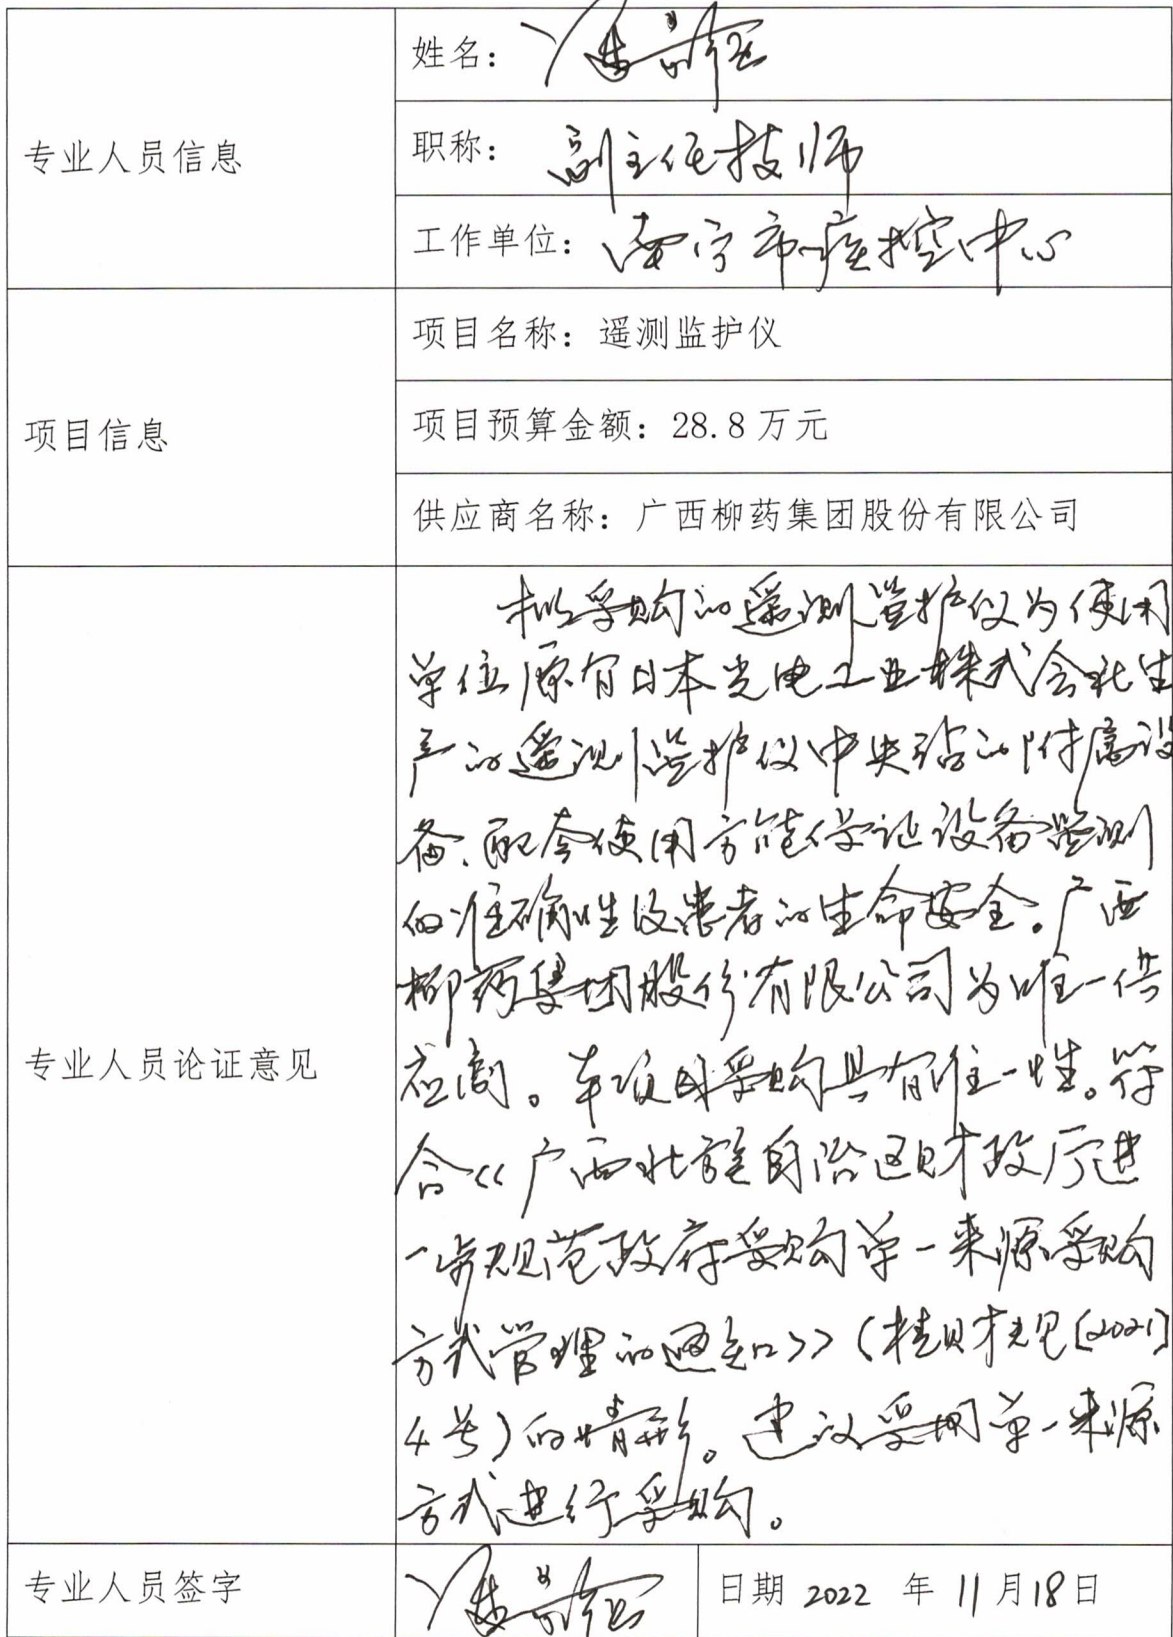 专业人员信息
姓名：
职称：副主任技师
工作单位：南宁市疾控中心
项目信息
项目名称：遥测监护仪
项目预算金额：28.8万元
供应商名称：广西柳药集团股份有限公司
专业人员论证意见
拟采购的遥测监护仪为使用
单位原有日本光电工业株式会社生
产的遥测监护仪中央站的附属设
备、配套使用方能保证设备监测
的准确性及患者的生命安全。广西
柳药集团股份有限公司为唯一供
应商。本项目采购具有唯一性。符
合《广西壮族自治区财政厅进
一步规范政府采购单一来源采购
方式管理的通知》（桂财采〔2021〕
4号）的情形。建议采用单一来源
方式进行采购。
专业人员签字
日期 2022 年 11月18日